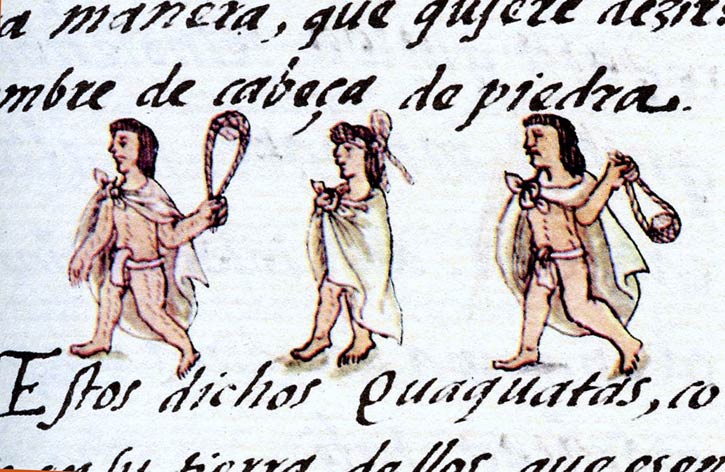 a manera, que quiere dezir
mbre de cabeça de piedra.
Estos dichos Quaquatas, co
en su tierra dellos, que eran